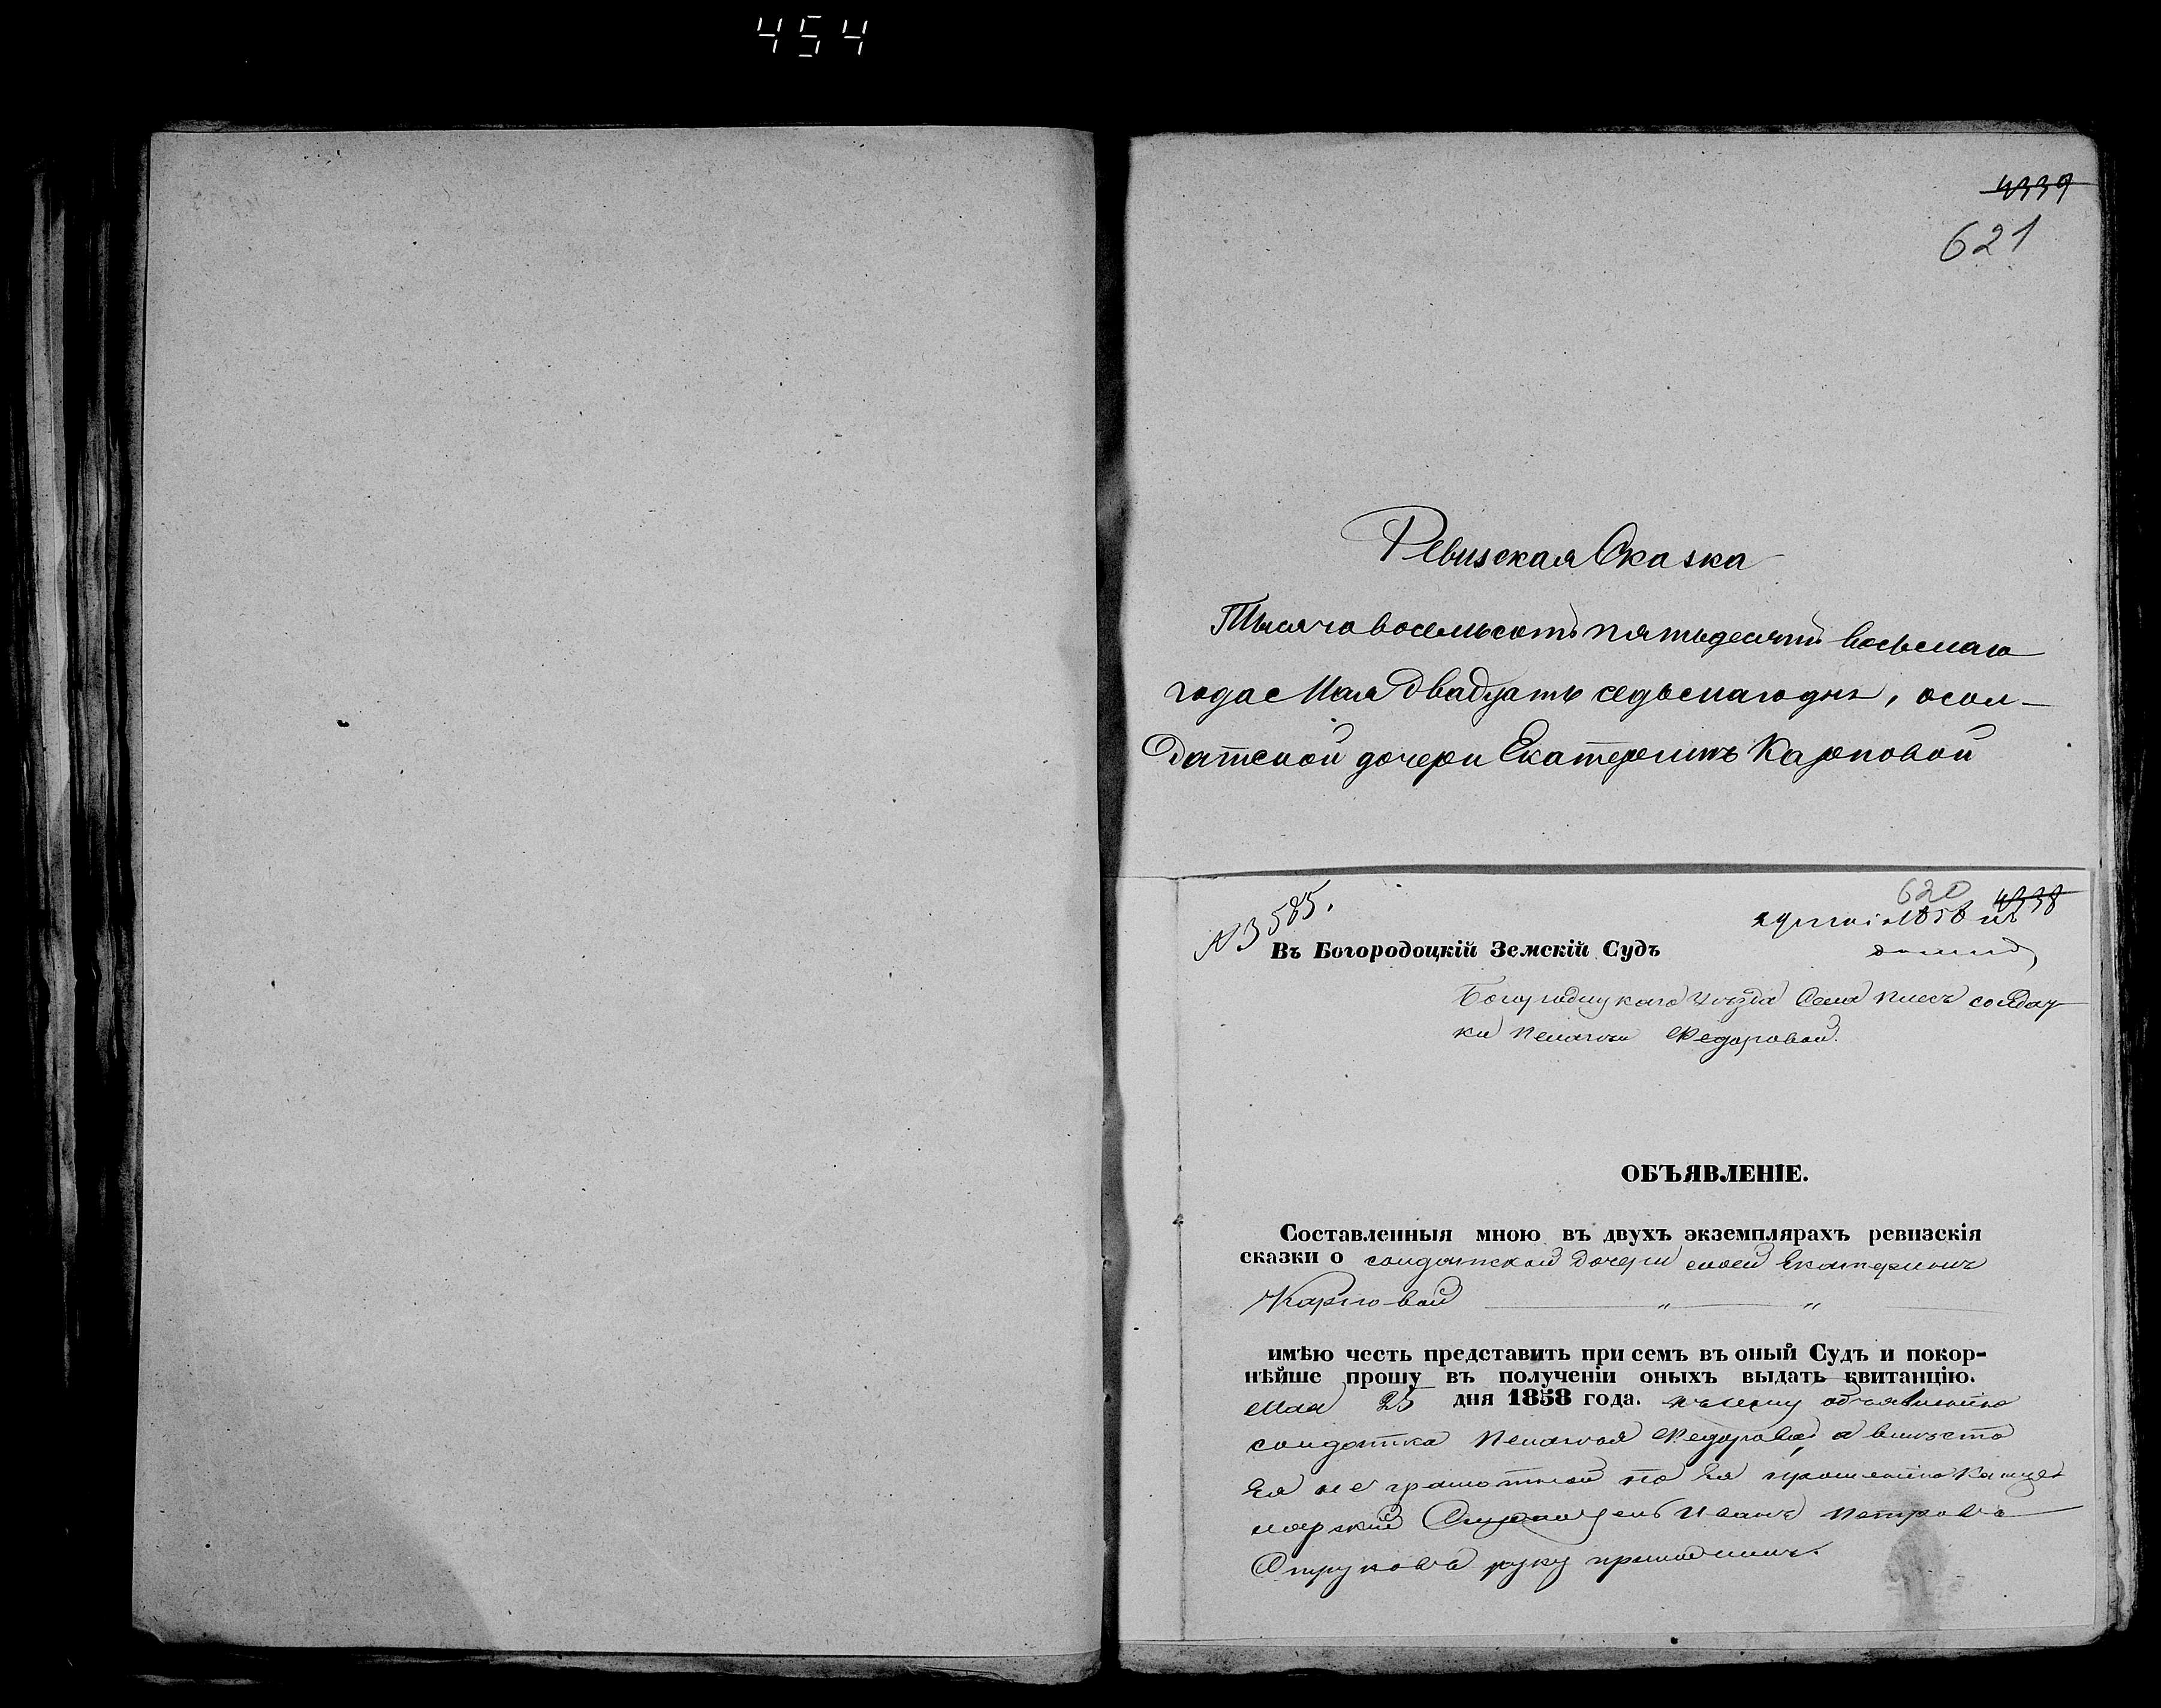 454
4339
621
Ревизская Сказка
Тысяча восемьсотъ пятьдесятъ восьмаго
года Мая двадцать седьмаго дня, о сол-
датской дочери Екатеринѣ Карповой
620 4338
№ 3585.
29 мая 1858
Въ Богородоцкій Земскій Судъ
Богородицкаго Уѣзда Села солдат
ки Пелагѣи Федоровой.
ОБЪЯВЛЕНІЕ.
Составленныя мною въ двухъ экземплярахъ ревизскія
сказки о солдатской дочери моей Екатеринѣ
Карповой
имѣю честь представить при семъ въ оный Судъ и покор-
нѣйше прошу въ полученіи оныхъ выдать квитанцію.
Мая 25 дня 1858 года. къ сему объявленію
солдатка Пелагея Федорова, а вмѣсто
ея не грамотной по ея прошенію Канце
лярскій Служитель Иванъ Петровъ
Струковъ руку приложилъ.